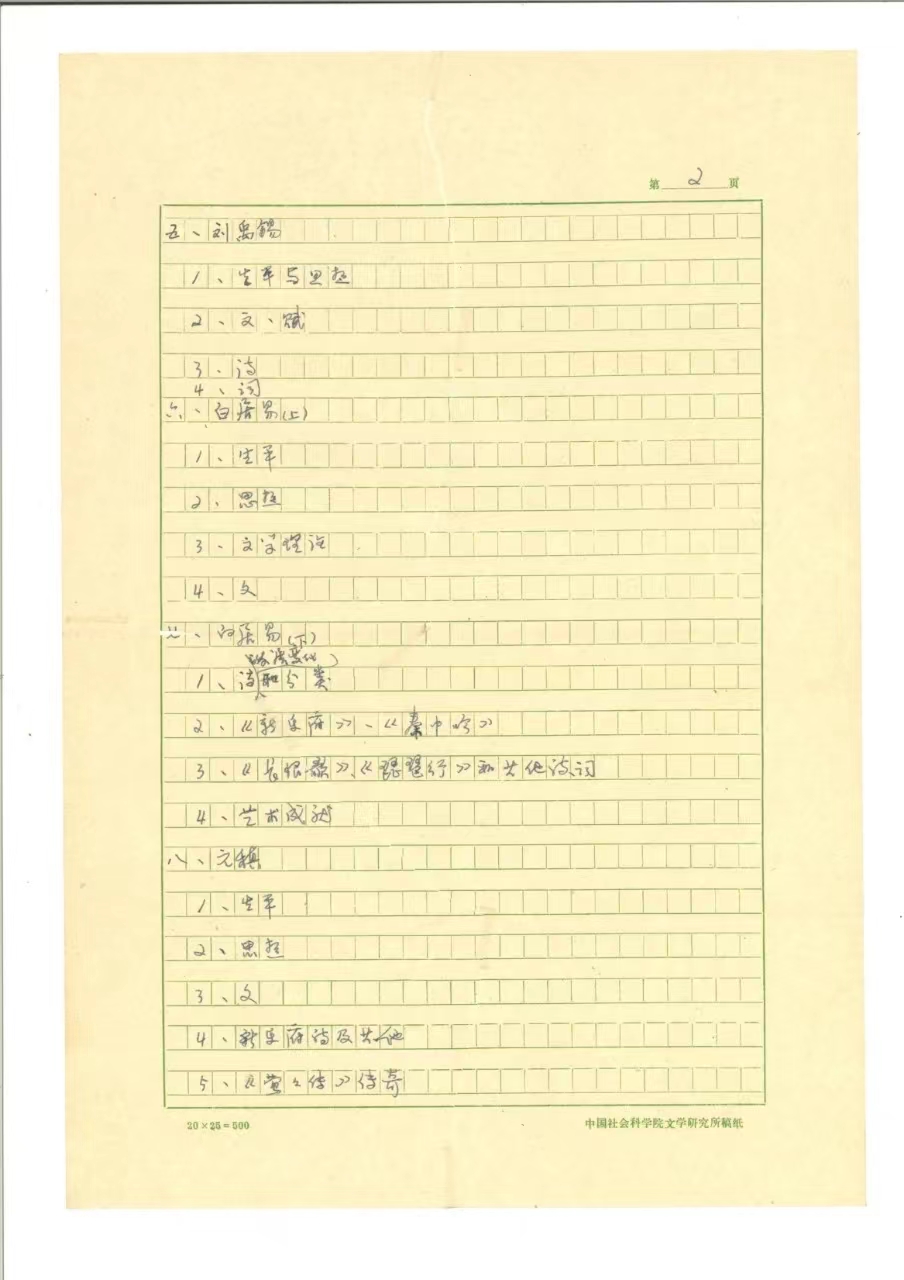 第 2 页
五、刘禹锡
1、生平与思想
2、文、赋
3、诗
4、词
六、白居易(上)
1、生平
2、思想
3、文学理论
4、文
七、白居易(下)
1、诗和分类
2、《新乐府》、《秦中吟》
3、《长恨歌》、《琵琶行》和其他诗词
4、艺术成就
八、元稹
1、生平
2、思想
3、文
4、新乐府诗及其他
5、《莺々传》传奇
20×25=500
中国社会科学院文学研究所稿纸